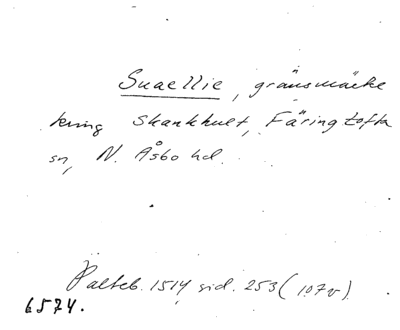 Snaellie, gränsmärke
kring Skankhult, Färingtofta
sn, N. Åsbo hd.
Palteb. 1514, sid. 253 (107v).
6574.